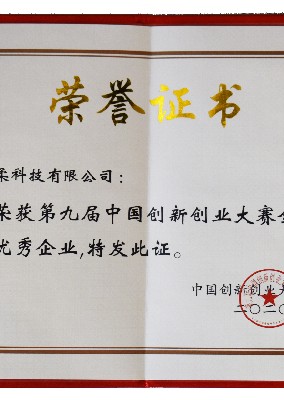 荣誉证书
柔科技有限公司：
荣获第九届中国创新创业大赛全
优秀企业,特发此证。
中国创新创业大
二〇二〇